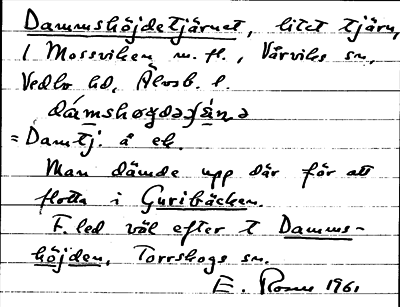 Dammshöjdetjärnet, litet tjärn,
1 Mossviken m. fl., Vårviks sn,
Vedbo hd, Älvsb. l.
= Damtj. å ek.
Man dämde upp där för att
flotta i Guribäcken.
F. led väl efter t Damms-
höjden, Torrskogs sn.
E. 1961